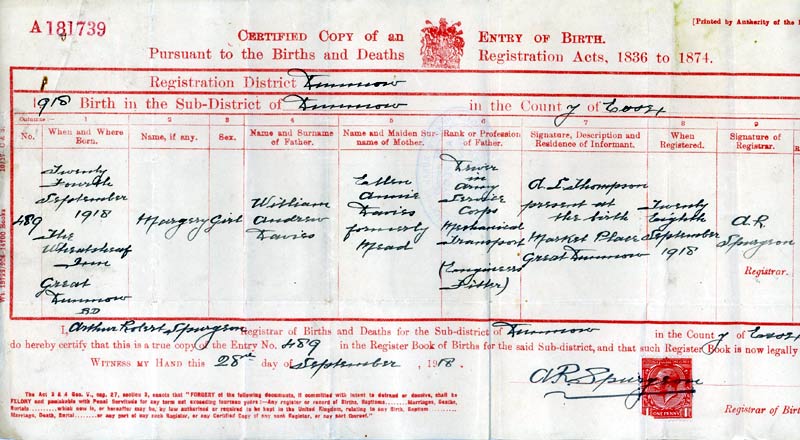 A181739
[Printed by Authority of the
CERTIFIED COPY of an ENTRY OF BIRTH.
Pursuant to the Births and Deaths Registration Acts, 1836 to 1874.
Registration District Dunmow
1918 Birth in the Sub-District of Dunmow in the County of Essex
Columns:— 1 2 3 4 5 6 7 8 9
No. When and Where Born. Name, if any. Sex. Name and Surname of Father. Name and Maiden Surname of Mother. Rank or Profession of Father. Signature, Description and Residence of Informant. When Registered. Signature of Registrar.
489
Twenty
Fourth
September
1918
The
Wheatsheaf
Inn
Great
Dunmow
R.D
Margery
Girl
William
Andrew
Davies
Ellen
Annie
Davies
formerly
Mead
Driver
in
Army
Service
Corps
Mechanical
Transport
(Engineers
Fitter)
A. L. Thompson
present at
the birth
Market Place
Great Dunmow
Twenty
Eighth
September
1918
A.R.
Spurgeon
Registrar.
I, Arthur Robert Spurgeon Registrar of Births and Deaths for the Sub-district of Dunmow in the County of Essex
do hereby certify that this is a true copy of the Entry No. 489 in the Register Book of Births for the said Sub-district, and that such Register Book is now legally
WITNESS MY HAND this 28th day of September, 1918.
A R Spurgeon
ONE PENNY
Registrar of B
The Act 3 & 4 Geo. V., cap. 27, section 3, enacts that "FORGERY of the following documents, if committed with intent to defraud or deceive, shall be
FELONY and punishable with Penal Servitude for any term not exceeding fourteen years:—Any register or record of Births, Baptisms, Marriages, Deaths,
Burials which now is, or hereafter may be, by law authorised or required to be kept in the United Kingdom, relating to any Birth, Baptism
Marriage, Death, Burial or any part of any such Register, or any Certified Copy of any such Register, or any part thereof."